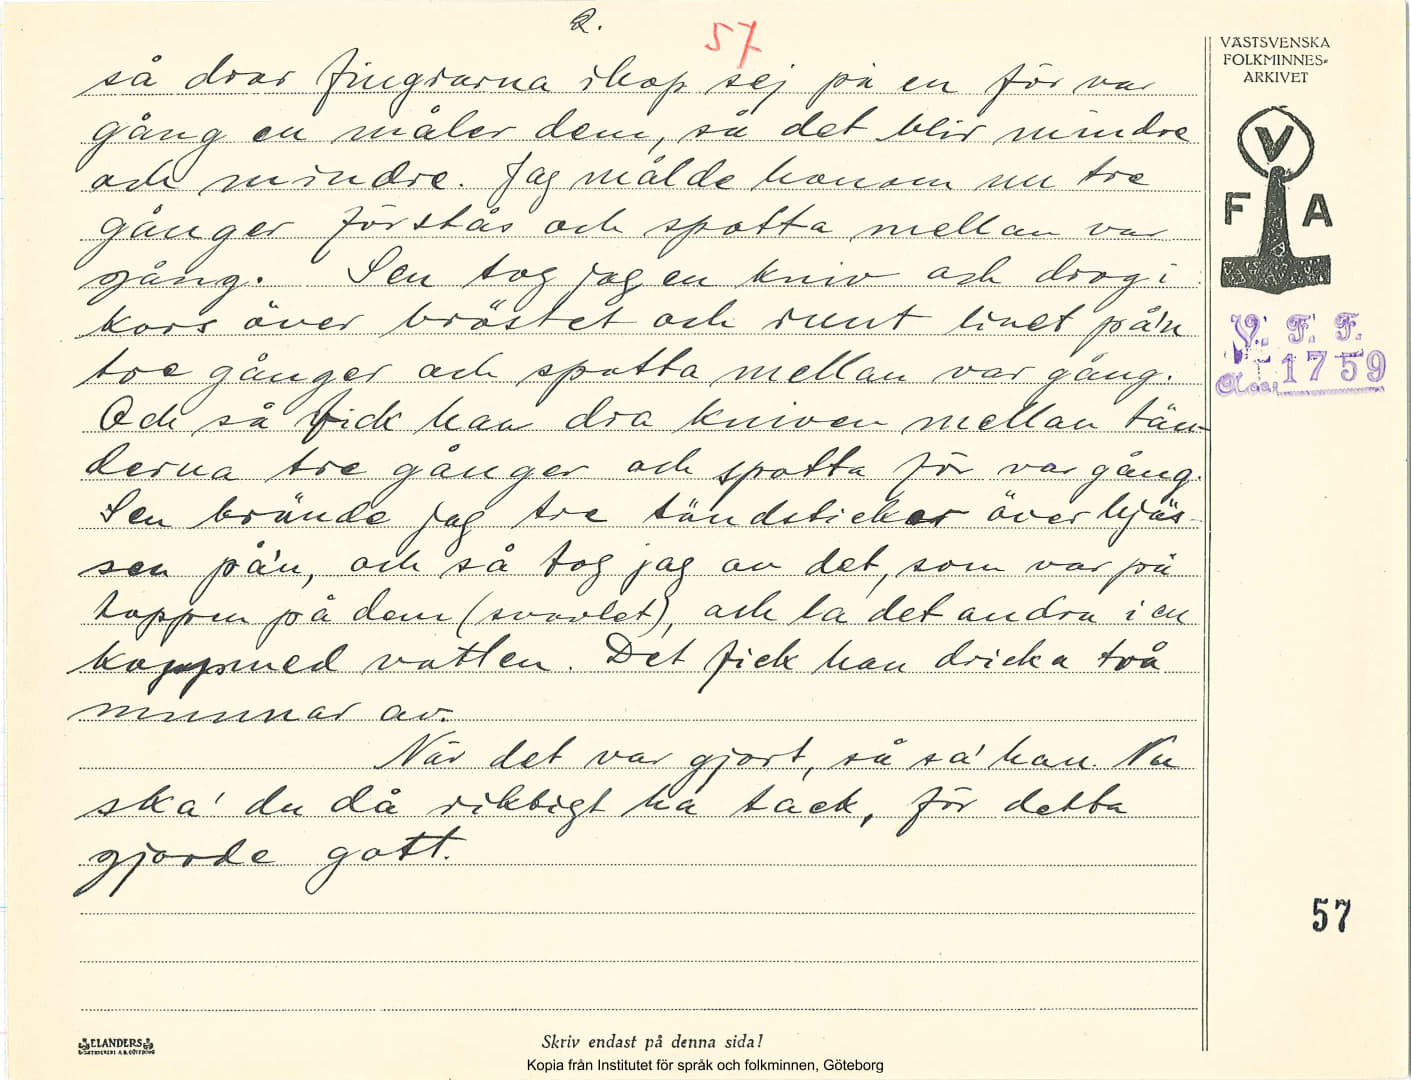 2.
57
så drar fingrarna ihop sej på en för var
gång en måler dem, så det blir mindre
och mindre. Jag målde honom nu tre
gånger förstås och spotta mellan var
gång. Sen tog jag en kniv och drog i
kors över bröstet och runt livet på'n
tre gånger och spotta mellan var gång.
Och så fick han dra kniven mellan tän-
derna tre gånger och spotta för var gång.
Sen brände jag tre tändstickor över hjäs-
sen på'n, och så tog jag av det, som var på
toppen på dem (svavlet), och la det andra i en
kopp med vatten. Det fick han dricka två
munnar av.
När det var gjort, så sa' han. Nu
ska' du då riktigt ha tack, för detta
gjorde gott.
VÄSTSVENSKA
FOLKMINNES-
ARKIVET
V
F A
V. F. F.
1759
57
ELANDERS
Skriv endast på denna sida!
Kopia från Institutet för språk och folkminnen, Göteborg